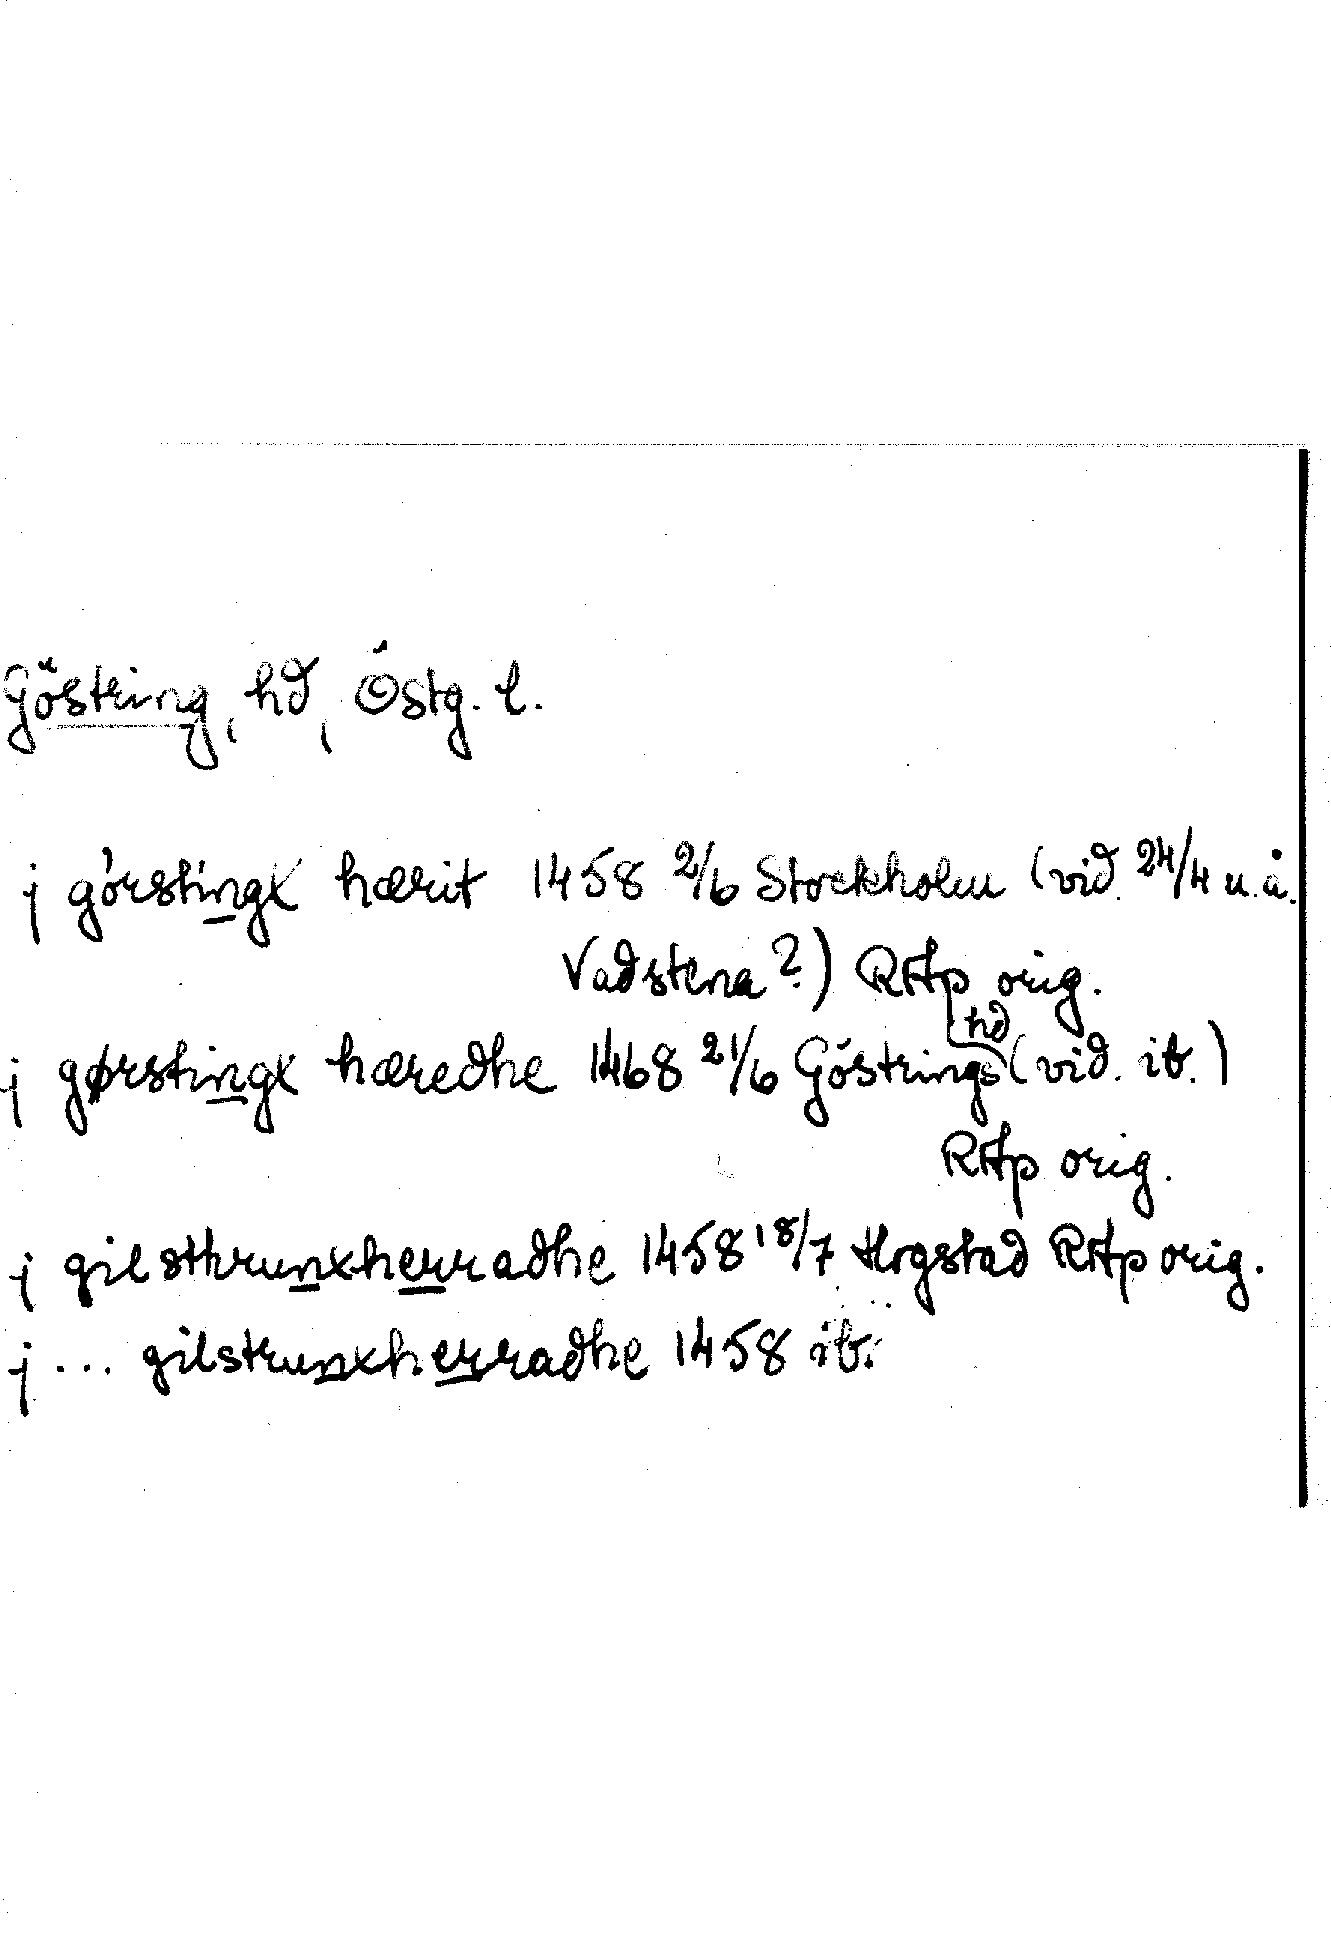 Göstring, hd, Östg. l.
j górstingx hærit 1458 2/6 Stockholm (vid. 24/4 u.å.
Vadstena?) RAp orig.
j gørstingx hæredhe 1468 21/6 Göstrings hd (vid. ib.)
RAp orig.
j gilsthrunxherradhe 1458 18/7 Hogstad RAp orig.
j ... gilstrunxherradhe 1458 ib.